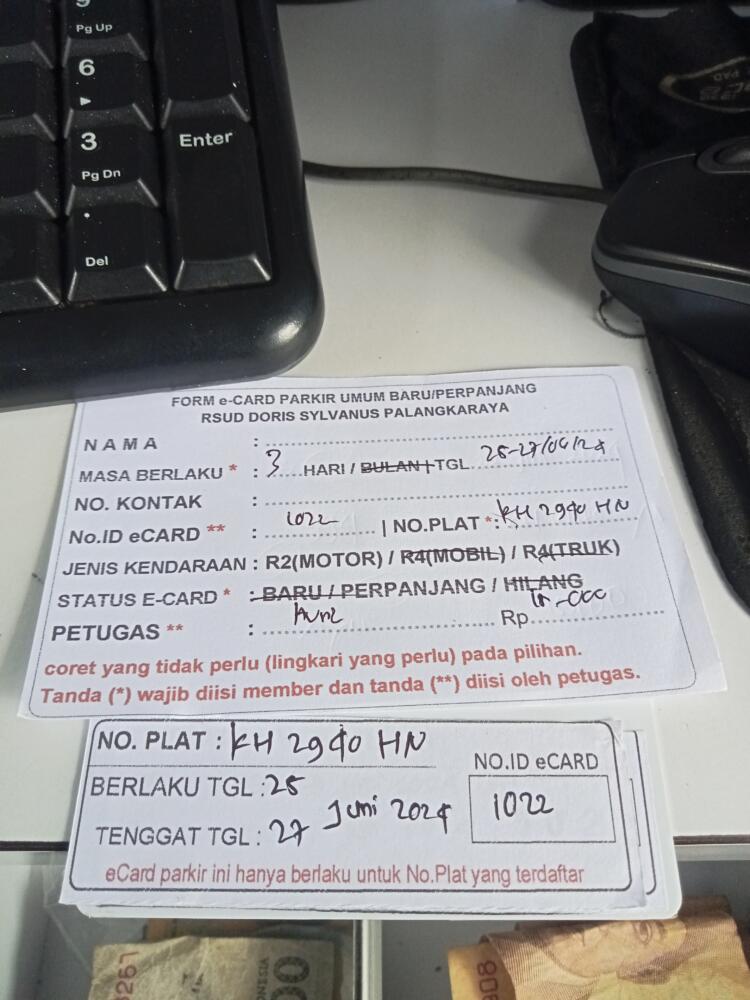 9
Pg Up
6
3
Pg Dn
Enter
.
Del
PAD
FORM e-CARD PARKIR UMUM BARU/PERPANJANG
RSUD DORIS SYLVANUS PALANGKARAYA
NAMA :
MASA BERLAKU * : 3 HARI / BULAN | TGL 25-27/06/24
NO. KONTAK :
No.ID eCARD ** : 1022 | NO.PLAT *: KH 2940 HN
JENIS KENDARAAN : R2(MOTOR) / R4(MOBIL) / R4(TRUK)
STATUS E-CARD * : BARU / PERPANJANG / HILANG
PETUGAS ** : Rp
coret yang tidak perlu (lingkari yang perlu) pada pilihan.
Tanda (*) wajib diisi member dan tanda (**) diisi oleh petugas.
NO. PLAT : KH 2940 HN
NO.ID eCARD
BERLAKU TGL : 25
1022
Juni 2024
TENGGAT TGL : 27
eCard parkir ini hanya berlaku untuk No.Plat yang terdaftar